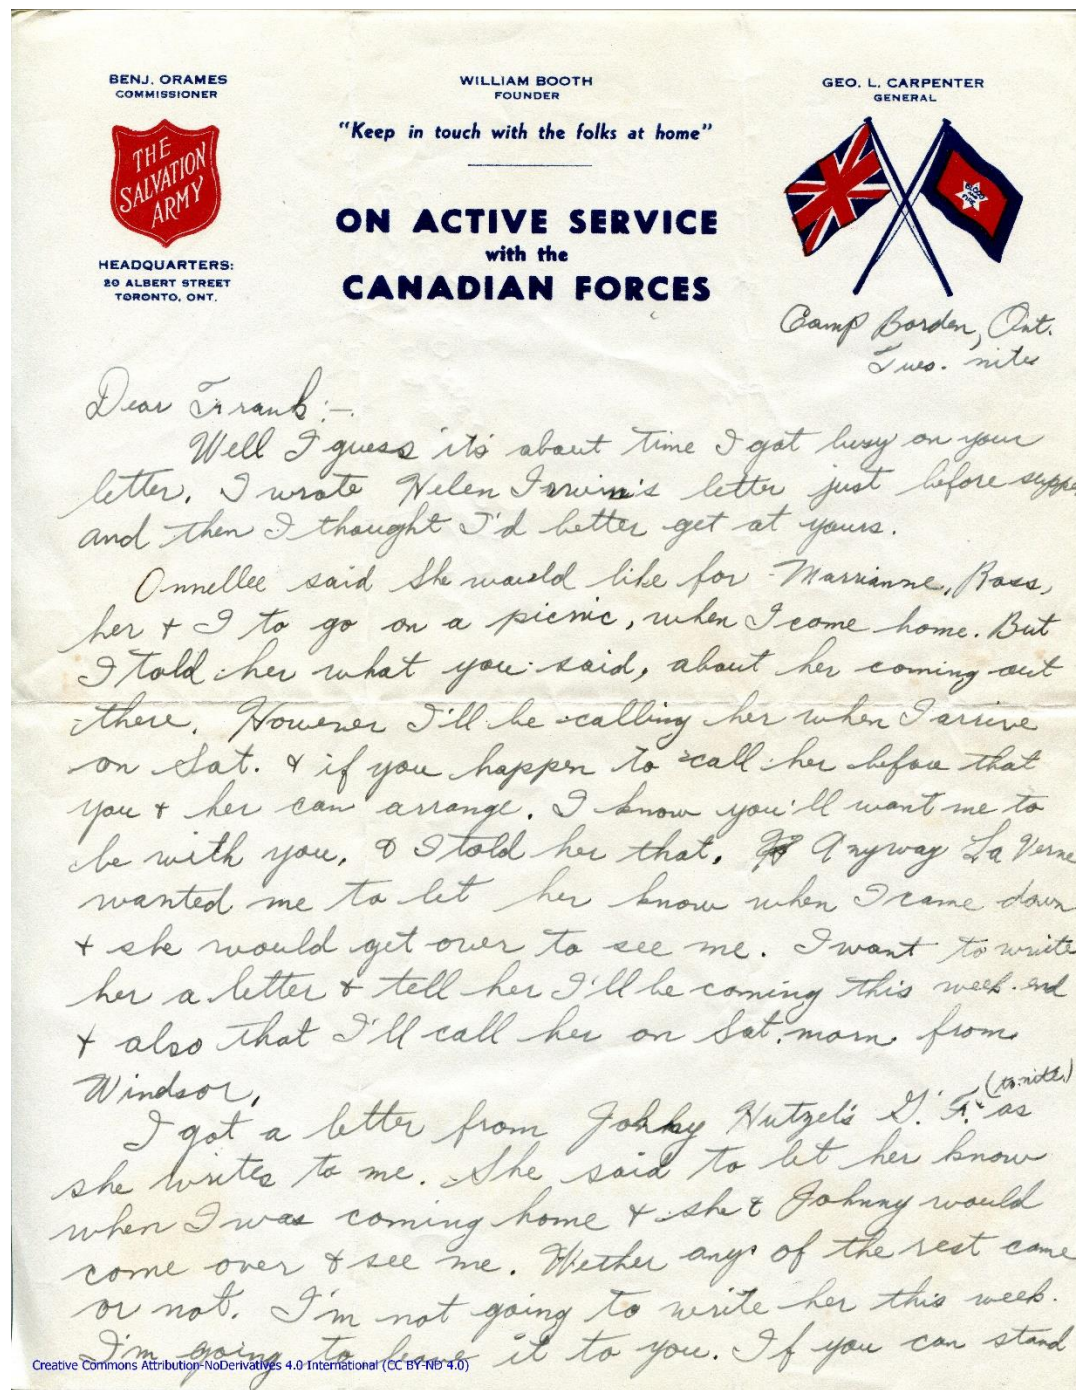 BENJ. ORAMES
COMMISSIONER
THE
SALVATION
ARMY
HEADQUARTERS:
20 ALBERT STREET
TORONTO, ONT.
WILLIAM BOOTH
FOUNDER
"Keep in touch with the folks at home"
ON ACTIVE SERVICE
with the
CANADIAN FORCES
GEO. L. CARPENTER
GENERAL
BLOOD
AND
FIRE
Camp Borden, Ont.
Tues. nite
Dear Frank:-
Well I guess it's about time I got busy on your
letter. I wrote Helen Irwin's letter just before suppe
and then I thought I'd better get at yours.
Onnellee said she would like for Marrianne, Ross,
her + I to go on a picnic, when I come home. But
I told her what you said, about her coming out
there. However I'll be calling her when I arrive
on Sat. & if you happen to call her before that
you + her can arrange. I know you'll want me to
be with you, & I told her that. Anyway La Verne
wanted me to let her know when I came down
+ she would get over to see me. I want to write
her a letter & tell her I'll be coming this week-end
+ also that I'll call her on Sat. morn. from
Windsor.
I got a letter from Johny Hutzel's G. F. (to-nite) as
she writes to me. She said to let her know
when I was coming home & she & Johnny would
come over & see me. Wether any of the rest came
or not. I'm not going to write her this week.
I'm going to leave it to you. If you can stand
Creative Commons Attribution-NoDerivatives 4.0 International (CC BY-ND 4.0)